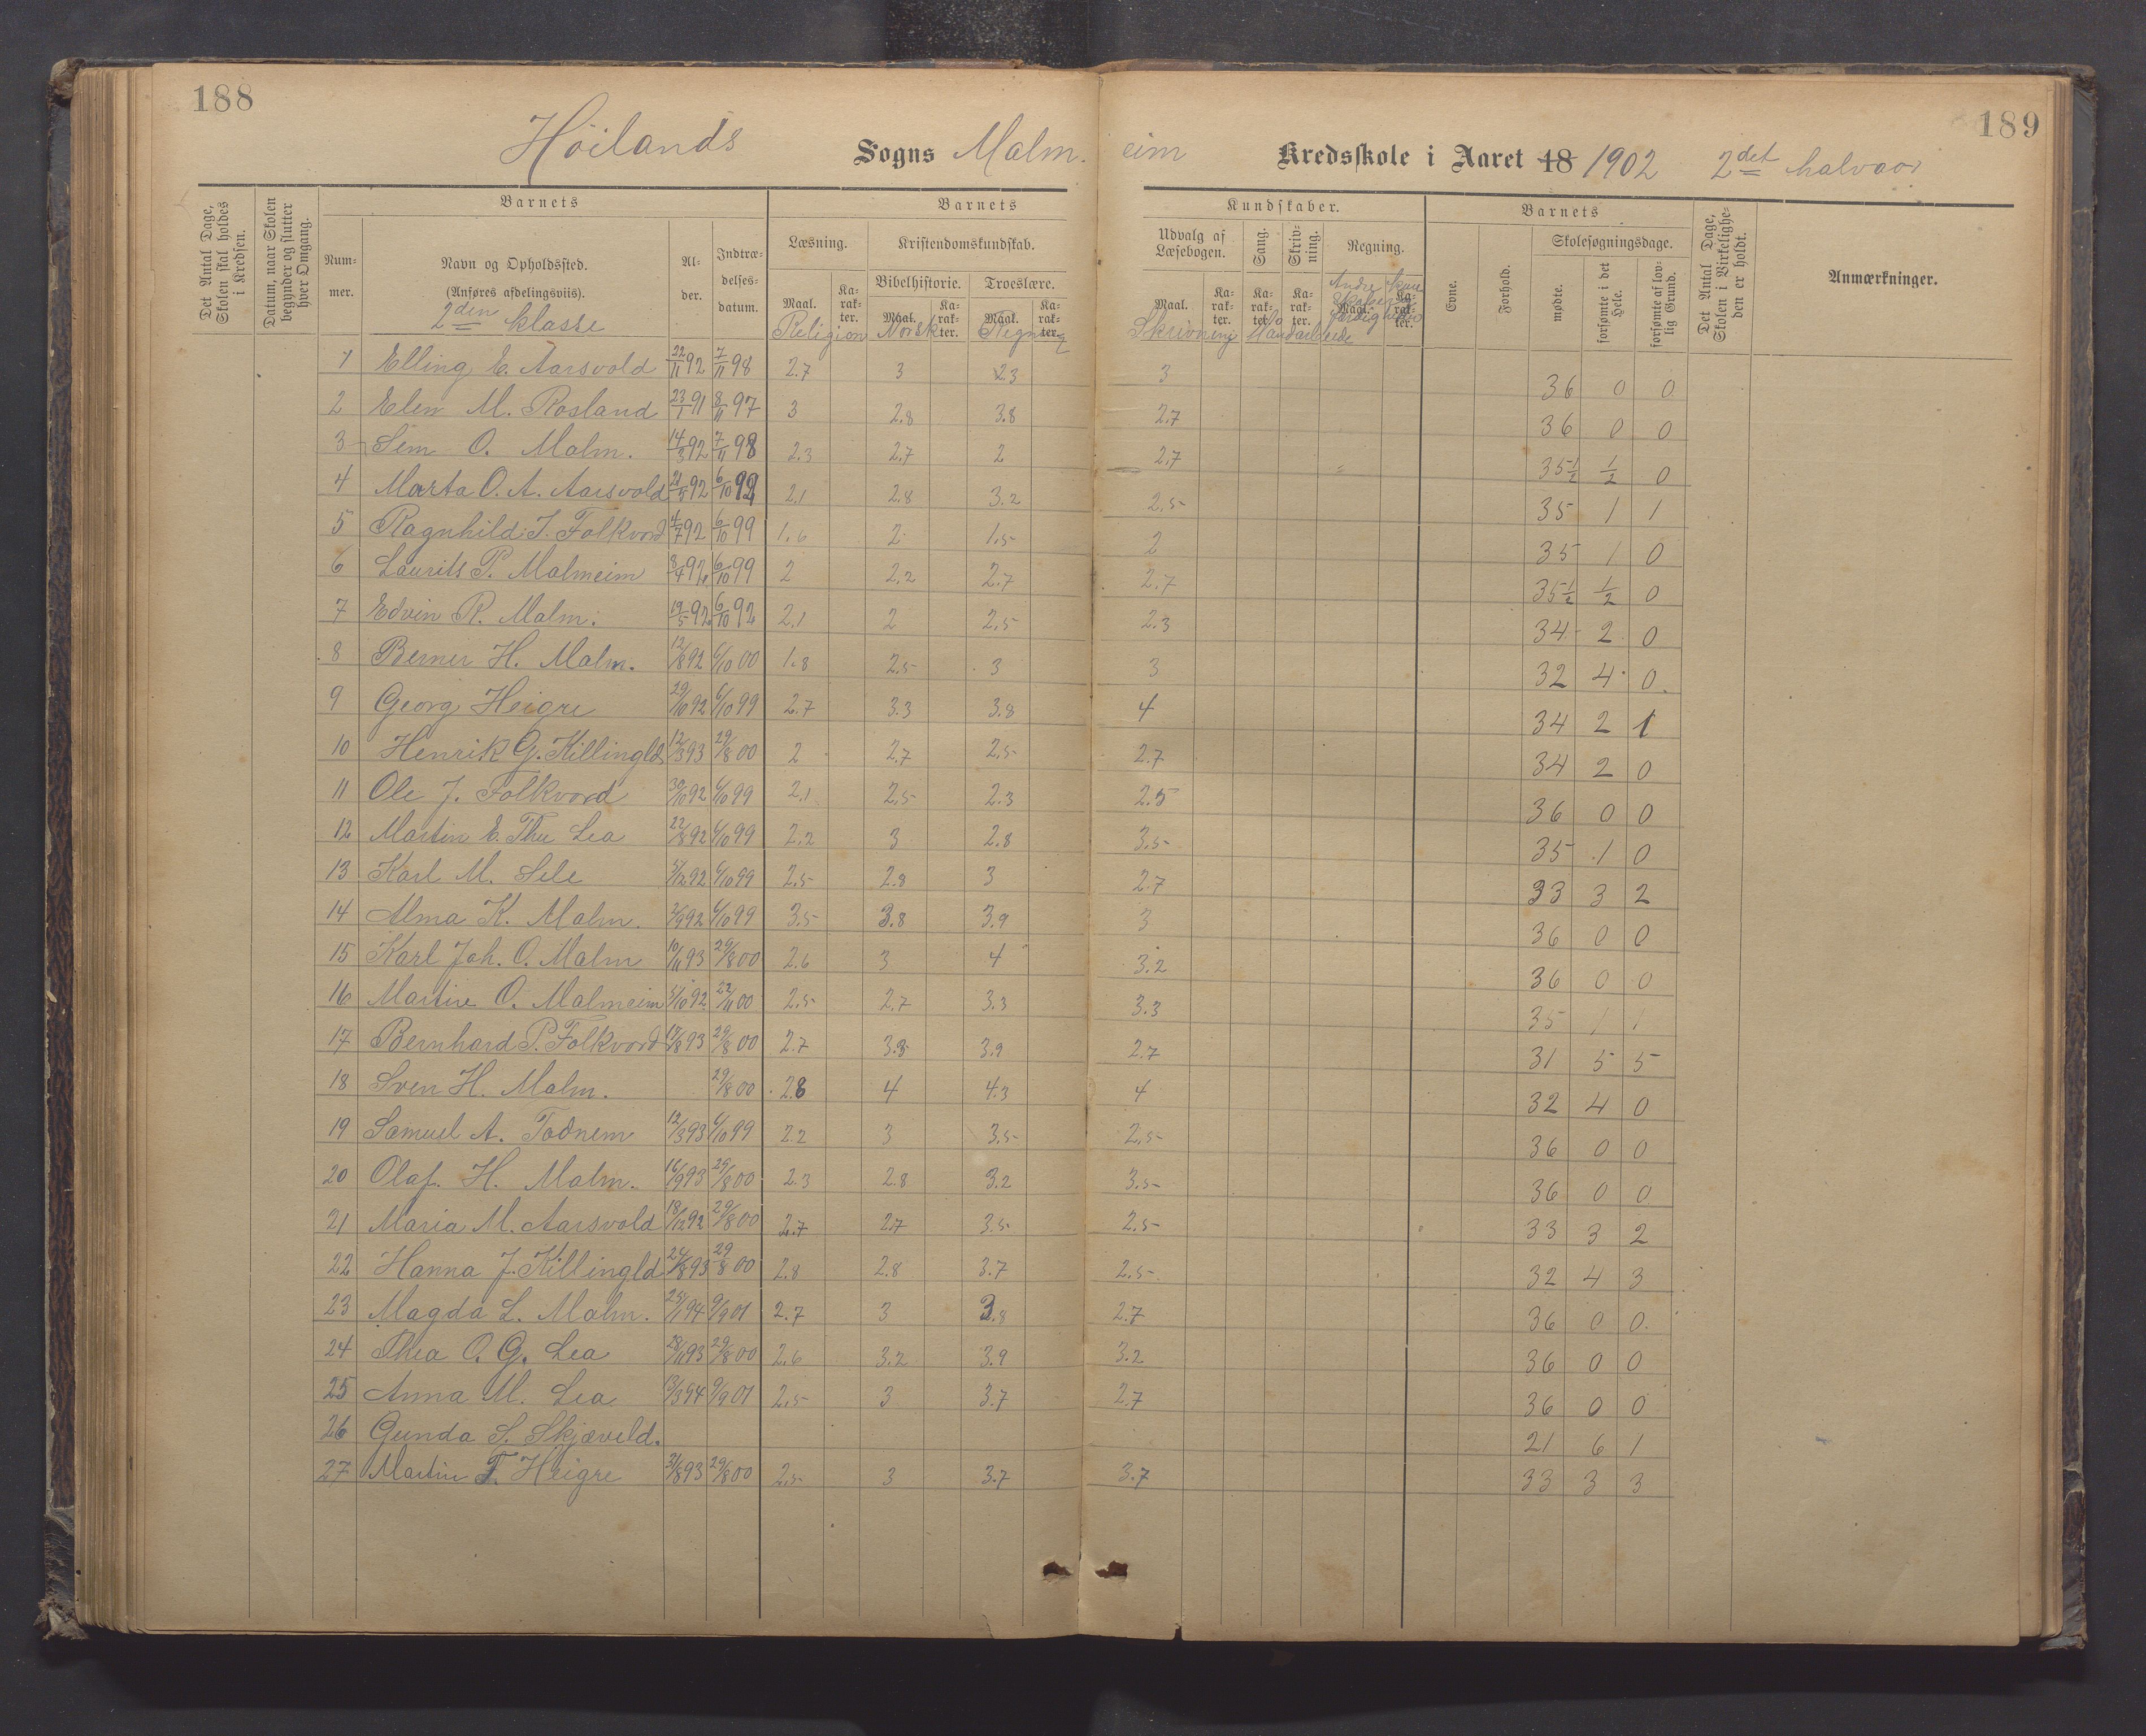 188
189
Höilands Sogns Malmeim Kredsskole i Aaret 18 1902 2det halvaar
Det Antal Dage, Skolen skal holdes i Kredsen.
Datum, naar Skolen begynder og slutter hver Omgang.
Barnets
Barnets
Kundskaber.
Barnets
Det Antal Dage, Skolen i Virkeligheden er holdt.
Anmærkninger.
Nummer.
Navn og Opholdssted. (Anføres afdelingsviis).
Alder.
Indtrædelsesdatum.
Læsning.
Kristendomskundskab.
Bibelhistorie.
Troeslære.
Udvalg af Læsebogen.
Sang.
Skrivning.
Regning.
Evne.
Forhold.
Skolesøgningsdage.
mødte.
forsømte i det Hele.
forsømte af lovlig Grund.
Maal. Karakter. Maal. Karakter. Maal. Karakter. Maal. Karakter. Karakter. Karakter. Maal. Karakter.
2den klasse Religion Norsk Regning Skrivning Haandarbeide
1 Elling E. Aarsvold 22/11 92 7/11 98 2.7 3 2.3 3 36 0 0
2 Elen M. Rosland 23/1 91 8/11 97 3 2.8 3.8 2.7 36 0 0
3 Sem O. Malm. 14/3 92 7/11 98 2.3 2.7 2 2.7 35 1/2 1/2 0
4 Marta O. A. Aarsvold 21/5 92 6/10 99 2.1 2.8 3.2 2.5 35 1 1
5 Ragnhild J. Folkvord 4/7 92 6/10 99 1.6 2 1.5 2 35 1 0
6 Laurits P. Malmeim 8/4 92 6/10 99 2 2.2 2.7 2.7 35 1/2 1/2 0
7 Edvin R. Malm. 19/5 92 6/10 92 2.1 2 2.5 2.3 34 2 0
8 Berner H. Malm. 12/8 92 6/10 00 1.8 2.5 3 3 32 4 0
9 Georg Heigre 29/10 92 6/10 99 2.7 3.3 3.8 4 34 2 1
10 Henrik G. Killingld 12/3 93 29/8 00 2 2.7 2.5 2.7 34 2 0
11 Ole J. Folkvord 30/10 92 6/10 99 2.1 2.5 2.3 2.5 36 0 0
12 Martin E. Thu Lea 22/8 92 6/10 99 2.2 3 2.8 3.5 35 1 0
13 Karl M. Sele 5/12 92 6/10 99 2.5 2.8 3 2.7 33 3 2
14 Alma K. Malm. 2/9 92 6/10 99 3.5 3.8 3.9 3 36 0 0
15 Karl Joh. O. Malm 10/11 93 29/8 00 2.6 3 4 3.2 36 0 0
16 Martine O. Malmeim 5/10 92 22/11 00 2.5 2.7 3.3 3.3 35 1 1
17 Bernhard P. Folkvord 17/8 93 29/8 00 2.7 3.3 3.9 2.7 31 5 5
18 Sven H. Malm. 29/8 00 2.8 4 4.3 4 32 4 0
19 Samuel A. Todnem 12/3 93 6/10 99 2.2 3 3.5 2.5 36 0 0
20 Olaf. H. Malm. 16/9 93 29/8 00 2.3 2.8 3.2 3.5 36 0 0
21 Maria M. Aarsvold 18/12 92 29/8 00 2.7 2.7 3.5 2.5 33 3 2
22 Hanna J. Killingld 24/8 93 29/8 00 2.8 2.8 3.7 2.5 32 4 3
23 Magda L. Malm. 25/1 94 9/9 01 2.7 3 3.8 2.7 36 0 0
24 Thea O. G. Lea 28/11 93 29/8 00 2.6 3.2 3.9 3.2 36 0 0
25 Anna M. Lea 13/3 94 9/9 01 2.5 3 3.7 2.7 36 0 0
26 Gunda S. Skjæveld. 21 6 1
27 Martin T. Heigre 31/8 93 29/8 00 2.5 3 3.7 3.7 33 3 3